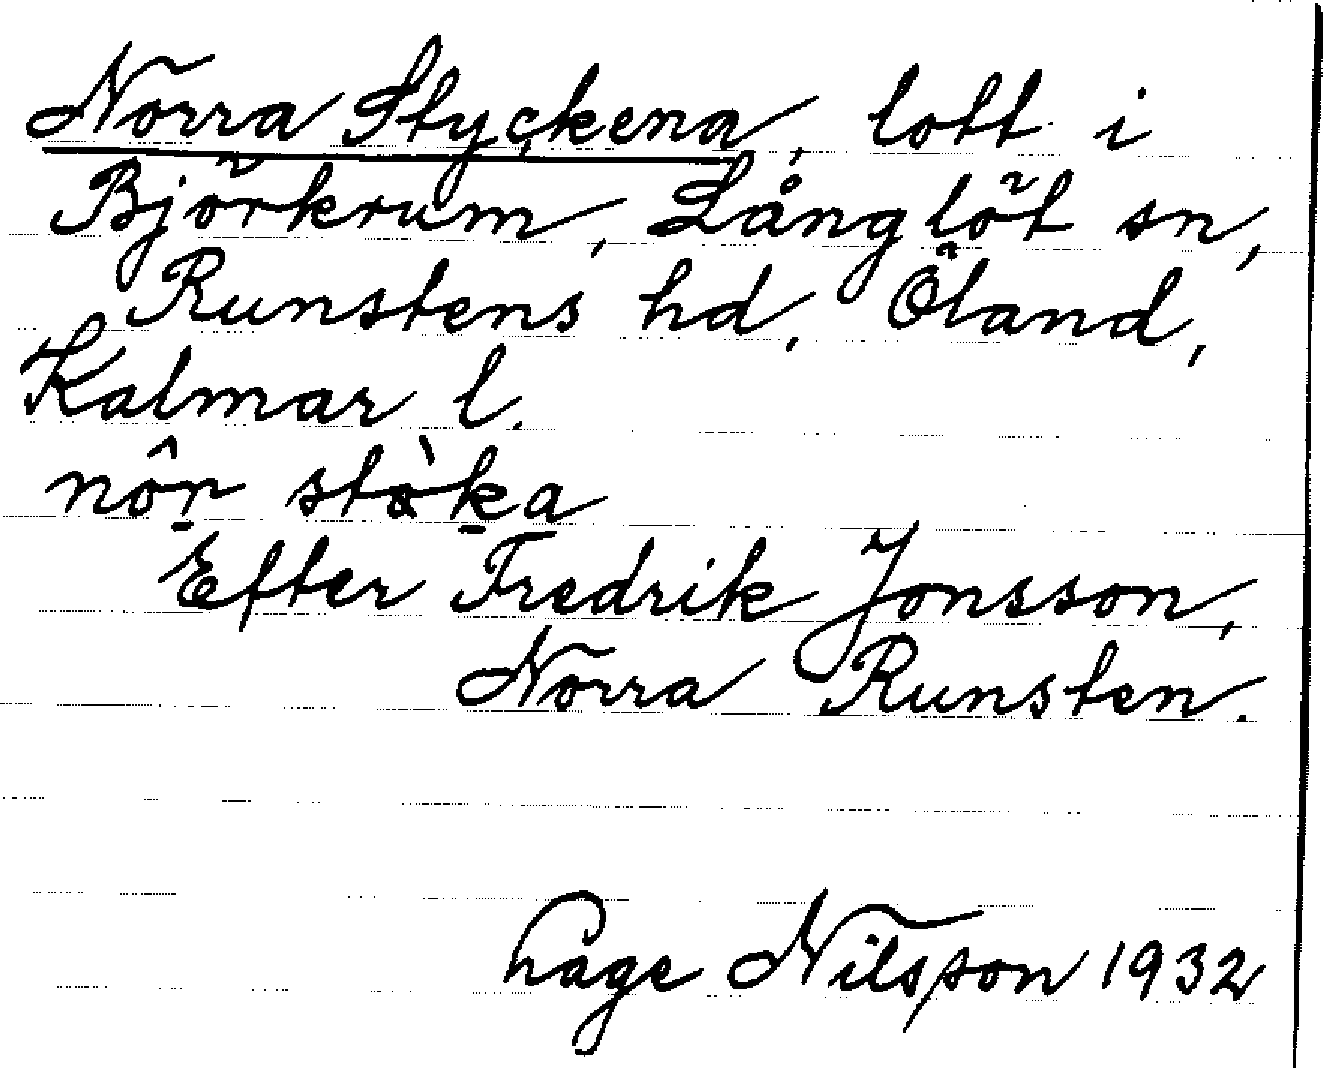 Norra Styckena, lott i
Björkrum, Långlöt sn,
Runstens hd, Öland,
Kalmar l.
nôṟ stàḵa
Efter Fredrik Jonsson,
Norra Runsten.
Hage Nilsson 1932